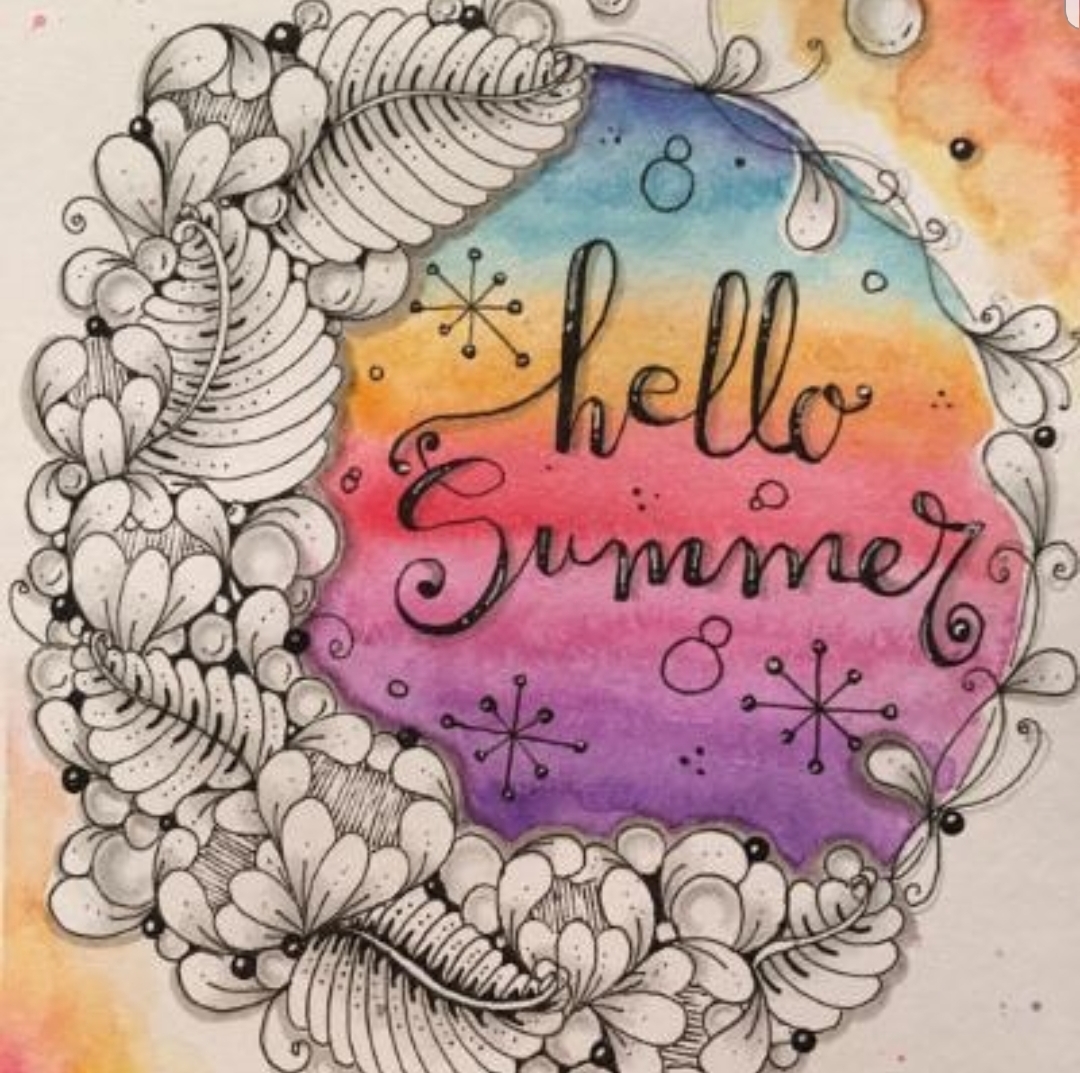 hello
Summer